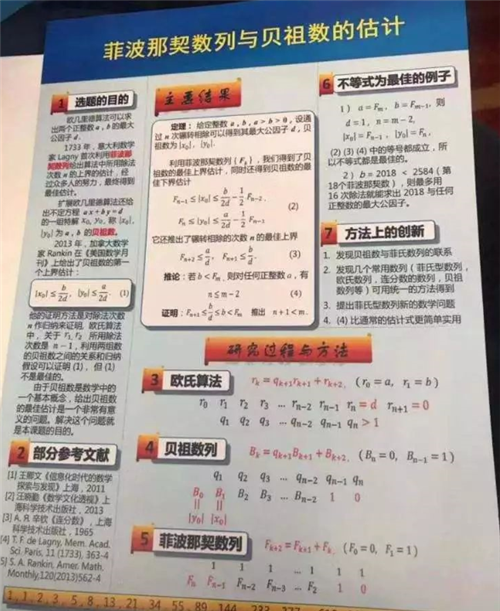 菲波那契数列与贝祖数的估计
1 选题的目的
欧几里德算法可以求
出两个正整数 a, b 的最大
公因子 d。
1733 年，意大利数学
家 Lagny 首次利用菲波那
契数列给出算法中所用除法
次数 n 的上界的估计，经
过众多人的努力，最终得到
最佳估计。
扩展欧几里德算法还给
出不定方程 ax+by=d
的一组特解 x₀, y₀，称 |x₀|,
|y₀| 为 a, b 的贝祖数。
2013 年，加拿大数学
家 Rankin 在《美国数学月
刊》上给出了贝祖数的第一
个上界估计：
|x₀| ≤ b/2d, |y₀| ≤ a/2d (1)
他的证明方法是对除法次数
n 作归纳来证明。欧氏算法
中，关于 r₁, r₂ 所用除法
次数是 n − 1，利用两组数
的贝祖数之间的关系和归纳
假设可以证明 (1)，但 (1)
不是最佳的。
由于贝祖数是数学中的
一个基本概念，给出贝祖数
的最佳估计是一个非常有意
义的问题。解决这个问题就
是本课题的目的。
2 部分参考文献
[1] 王鄂文《信息化时代的数学
探索与发现》上海，2011
[2] 汪晓勤《数学文化透视》上
海科学技术出版社，2013
[3] A. Я. 辛钦《连分数》，上海
科学技术出版社，1965
[4] T. F. de Lagny, Mem. Acad.
Sci. Paris, 11 (1733), 363-4
[5] S. A. Rankin, Amer. Math.
Monthly,120(2013)562-4
主要结果
定理：给定整数 a, b, a > b > 0，设通
过 n 次辗转相除可以得到其最大公因子 d，贝
祖数为 |x₀|, |y₀|.
利用菲波那契数列 {Fₙ}，我们得到了贝
祖数的最佳上界估计，同时还得到贝祖数的最
佳下界估计
Fₙ₋₁ ≤ |x₀| ≤ b/2d − 1/2 Fₙ₋₂,
(2)
Fₙ ≤ |y₀| ≤ a/2d − 1/2 Fₙ₋₁.
它还推出了辗转相除的次数 n 的最佳上界
Fₙ₊₂ ≤ a/d, Fₙ₊₁ ≤ b/d. (3)
推论：若 b < Fₘ，则对任何正整数 a，有
n ≤ m − 2 (4)
证明：Fₙ₊₁ ≤ b/d ≤ b < Fₘ 推出 n + 1 < m.
6 不等式为最佳的例子
1） a = Fₘ, b = Fₘ₋₁, 则
d = 1, n = m − 2,
|x₀| = Fₙ₋₁, |y₀| = Fₙ.
(2) (3) (4) 中的等号都成立，所
以不等式都是最佳的。
2）b = 2018 < 2584 ( 第
18个菲波那契数 )，则最多用
16 次除法就能求出 2018 与任何
正整数的最大公因子。
7 方法上的创新
1. 发现贝祖数与菲氏数列的联系
2. 发现几个常用数列（菲氏型数列，
欧氏数列，连分数的数列，贝祖
数列等）可用统一的方法得到
3. 提出菲氏型数列新的数学问题
4. (4) 比通常的估计式更简单实用
研究过程与方法
3 欧氏算法 rₖ = qₖ₊₁rₖ₊₁ + rₖ₊₂, (r₀ = a, r₁ = b)
r₀ r₁ r₂ r₃ … rₙ₋₂ rₙ₋₁ rₙ = d rₙ₊₁ = 0
q₁ q₂ q₃ … qₙ₋₂ qₙ₋₁ qₙ > 1
4 贝祖数列 Bₖ = qₖ₊₁Bₖ₊₁ + Bₖ₊₂, (Bₙ = 0, Bₙ₋₁ = 1)
q₁ q₂ q₃ … qₙ₋₂ qₙ₋₁ qₙ
B₀ B₁ B₂ B₃ … Bₙ₋₂ 1 0
|| ||
|y₀| |x₀|
5 菲波那契数列 Fₖ₊₂ = Fₖ₊₁ + Fₖ, (F₀ = 0, F₁ = 1)
1 1 1 … 1 1 1
Fₙ Fₙ₋₁ Fₙ₋₂ Fₙ₋₃ … F₂ 1 0
1, 1, 2, 3, 5, 8, 13, 21, 34, 55, 89, 144, 233